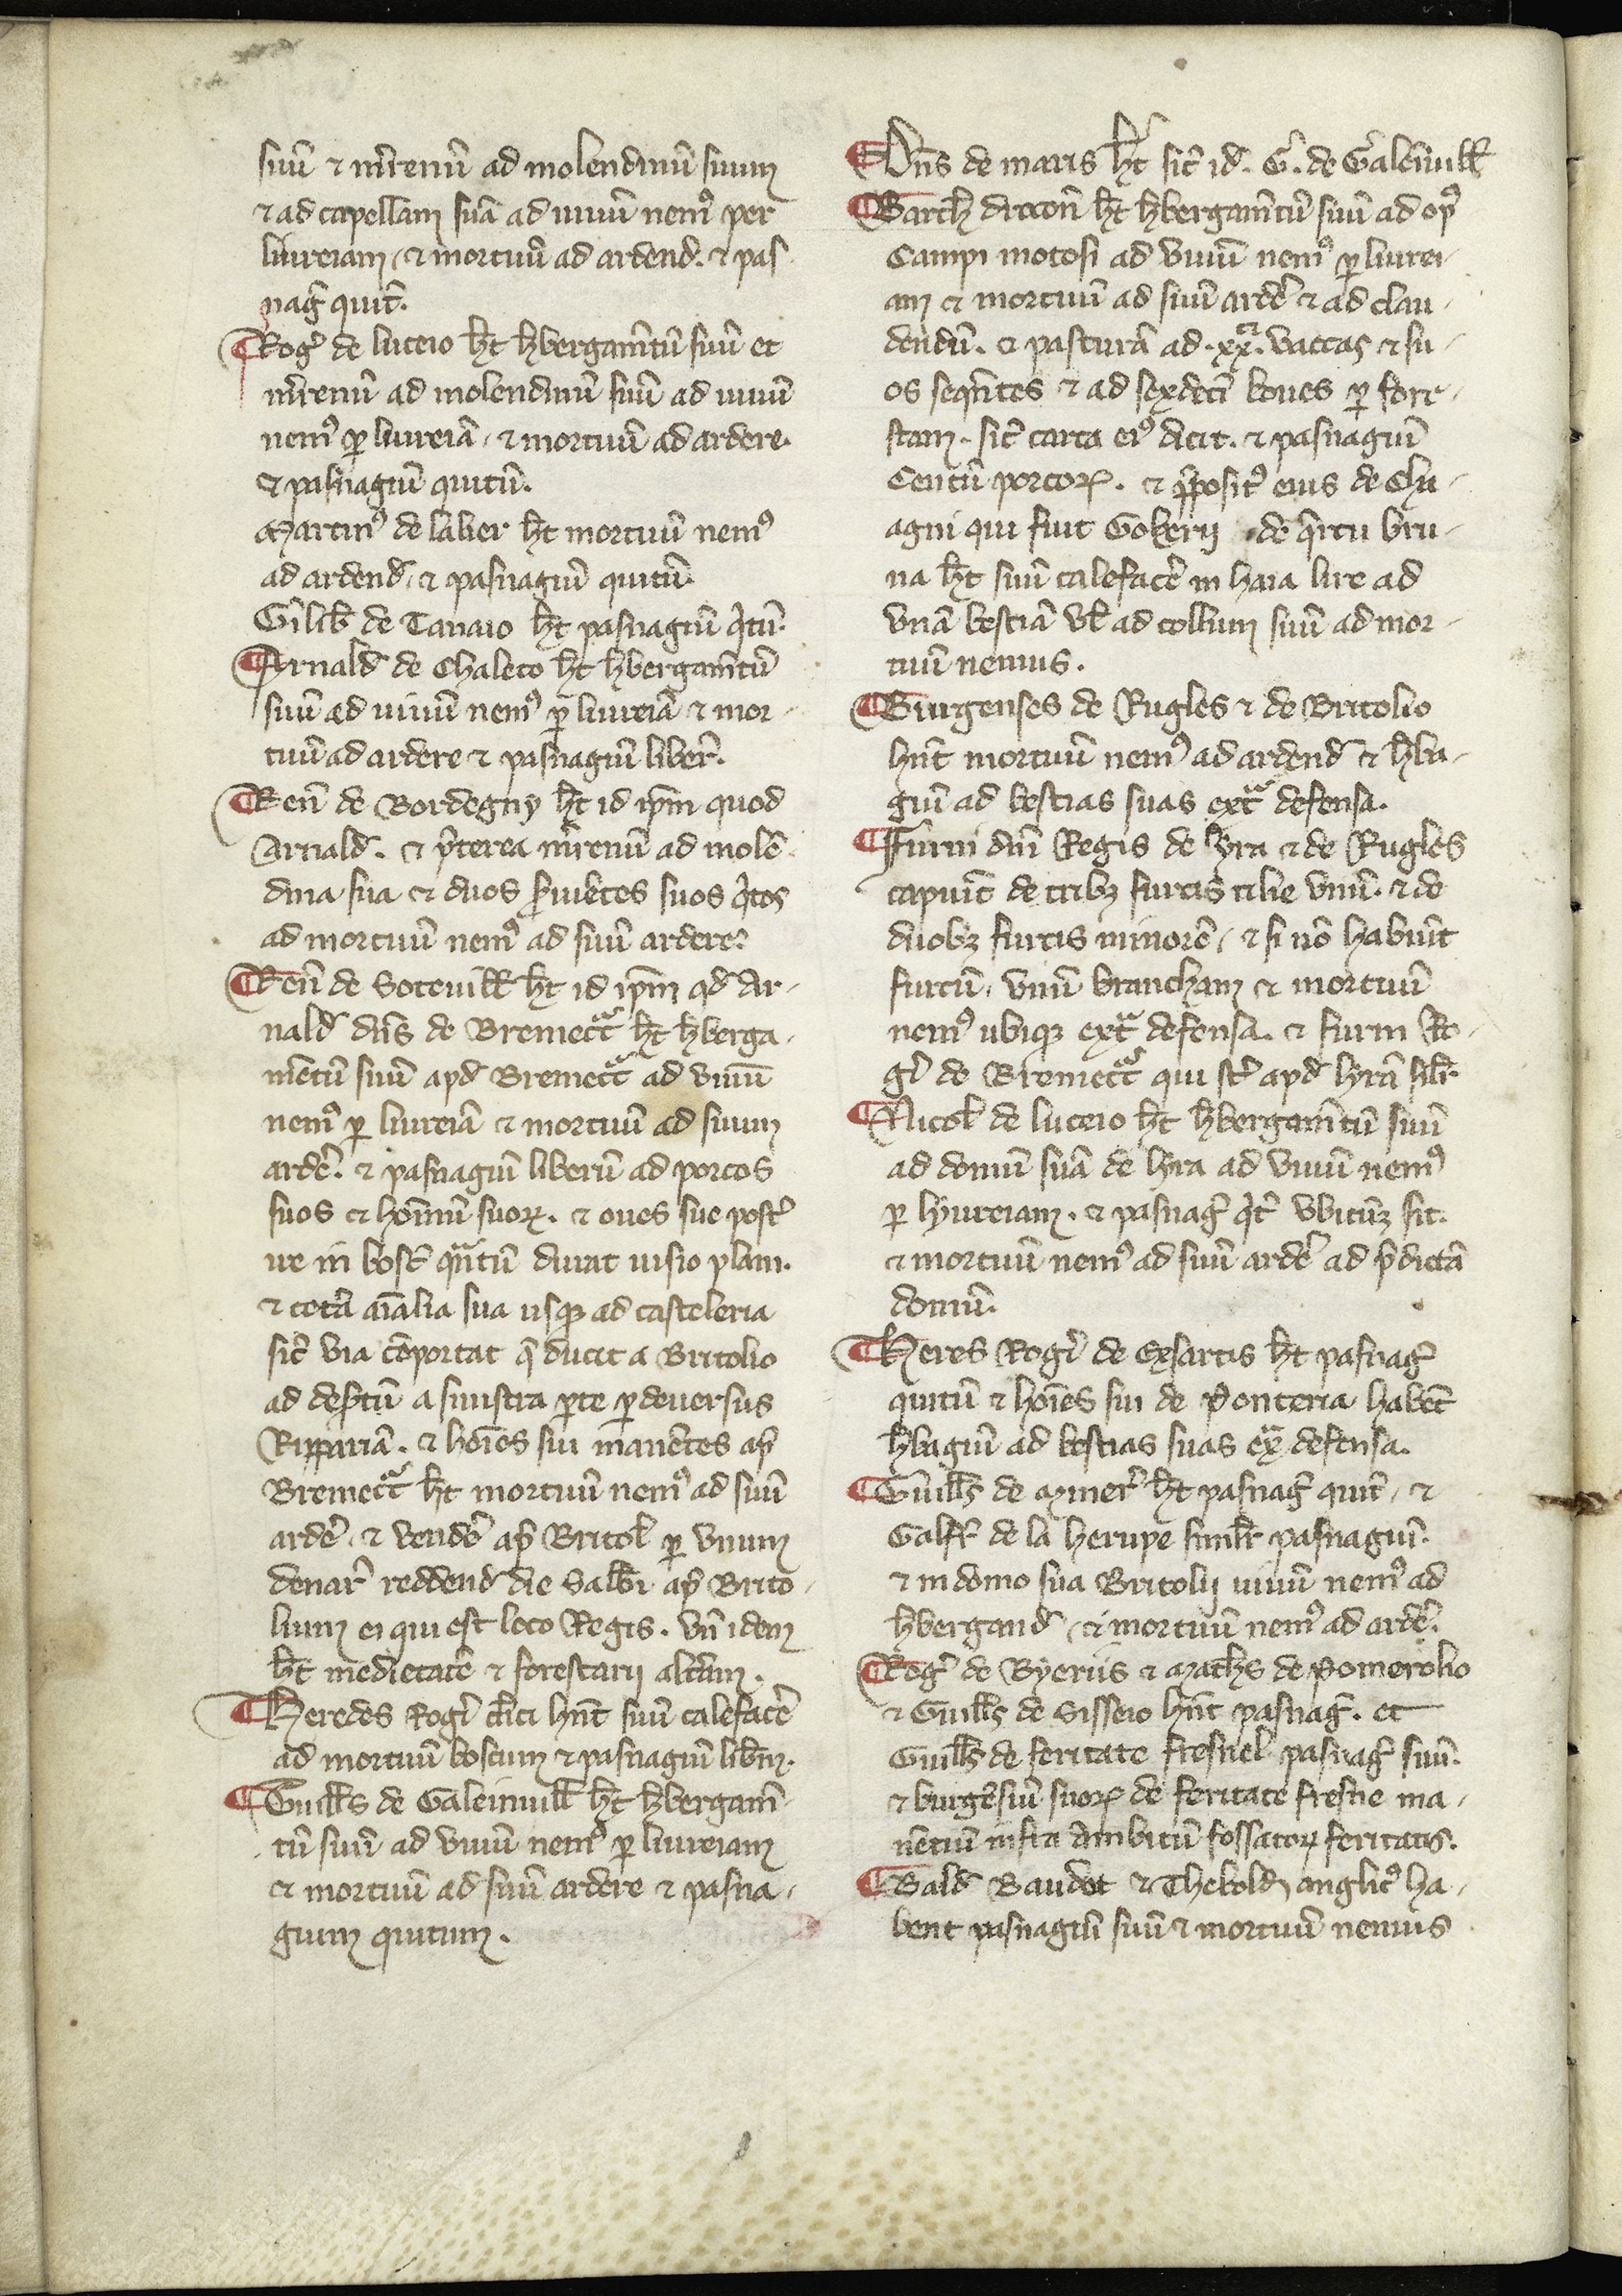 suū ⁊ mr̄renū ad molendinū suum
⁊ ad capellam suā ad uiuū nemꝰ per
liureiam, ⁊ mortuū ad ardend̄. ⁊ pas
nag̃ quit̃.
¶ Rog̃ de luceio hꝫ hbergam̄tū suū et
mr̄renū ad molendinū suū ad uiuū
nemꝰ ꝑ liureiā, ⁊ mortuū ad ardere.
⁊ pasnagiū quitū.
Martinꝰ de labier hꝫ mortuū nemꝰ
ad ardend̄, ⁊ pasnagiū quitū.
Gilib̃ de Tanaio hꝫ pasnagiū qͥtū.
¶ Arnald̃ de Chaleto hꝫ hbergam̄tū
suū ad uiuū nemꝰ ꝑ liureiā ⁊ mor-
tuū ad ardere ⁊ pasnagiū liber̃.
¶ Ren̄ de Bordegny hꝫ id ip̄m quod
Arnald̃. ⁊ p̄terea mr̄renū ad molē-
dina sua ⁊ duos s̃uiētes suos qͥtos
ad mortuū nemꝰ ad suū ardere.
¶ Ren̄ de Soteuill̃ hꝫ id ip̄m qd̃ Ar-
nald̃ dn̄s de Bremecᵃt̃ hꝫ hberga-
mētū suū apd̃ Bremecᵃt̃ ad uiuū
nemꝰ ꝑ liureiā ⁊ mortuū ad suum
ardēr. ⁊ pasnagiū liberū ad porcos
suos ⁊ hoīnū suoꝝ. ⁊ oues sue post̃
ire in bosc̃ quᵃtū durat uisio plani.
⁊ cetᵃ aīalia sua usqꝫ ad casteleria
sic̃ uia cōportat q̄ ducit a Britolio
ad desertū a sinistra ꝑte ꝑ deuersus
Rippariā. ⁊ hoīes sui manētes ap̃
Bremecᵃt̃ hꝫ mortuū nemꝰ ad suū
ardēr. ⁊ uendēr ap̃ Britol̃ ꝑ unum
denar̃ reddend̃ die Salbr̄i ap̃ Brito-
lium ei qui est loco Regis. un̄ idem
hꝫ medietatē ⁊ forestarii altam.
¶ Heredes Rog̃i cl̄ici hn̄t suū calefacēr
ad mortuū boscum ⁊ pasnagiū lib̄m.
¶ Guill̄s de Galeinuill̃ hꝫ hbergam̄-
tū suū ad uiuū nemꝰ ꝑ liureiam
⁊ mortuū ad suū ardere ⁊ pasna-
gium quitum.
¶ Dn̄s de maris hꝫ sic̃ id̃. G. de Galeinuill̃
¶ Barth̃ drocōn hꝫ hbergam̄tū suū ad opꝰ
Campi motosi ad uiuū nemꝰ ꝑ liurei-
am ⁊ mortuū ad suū ardēr ⁊ ad clau-
dendū. ⁊ pasturā ad .xxᵗⁱ. uaccas ⁊ su-
os seq̄ntes ⁊ ad sexdeci boues ꝑ fore-
stam. sic̃ carta eiꝰ dicit. ⁊ pasnagiū
Centū porcoꝝ. ⁊ p̄positꝰ eius de Chi-
agni qui fuit Gokerij de q̄rtu bru-
na hꝫ suū calefacēr in haia lire ad
unā bestiā ul̃ ad collum suū ad mor-
tuū nemus.
¶ Burgenses de Rugles ⁊ de Britolio
hn̄t mortuū nemꝰ ad ardend̃ ⁊ h̄ba-
giū ad bestias suas extᵃ defensa.
¶ Furni dn̄i Regis de lyra ⁊ de Rugles
capiūt de tribꝫ furcis tilie unū. ⁊ de
duobꝫ furcis minorē, ⁊ si nō habuīt
furcū, unū brancham ⁊ mortuū
nemꝰ ubiqꝫ extᵃ defensa. ⁊ furni Ro-
g̃i de Bremecᵃt̃ qui st̃ apd̃ lyrā sil̃r.
¶ Nicol̃ de luceio hꝫ hbergam̄tū suū
ad domū suā de lyra ad uiuū nemꝰ
ꝑ lyureiam. ⁊ pasnag̃ qͥt̃ ubicūqꝫ sit.
⁊ mortuū nemꝰ ad suū ardēr ad p̄dictā
domū.
¶ Heres Rog̃i de Exsartis hꝫ pasnag̃
quitū ⁊ hoīes sui de Ponteria habēt
h̄bagiū ad bestias suas exᵃ defensa.
¶ Guill̄s de miner̃ hꝫ pasnag̃ quit̃, ⁊
Galfr̃ de la herupe simil̃r pasnagiū.
⁊ in domo sua Britolij uiuū nemꝰ ad
hbergand̃, ⁊ mortuū nemꝰ ad ardēr.
¶ Rog̃ de Byeriis ⁊ math̄s de Pomerolio
⁊ Guill̄s de Sisseio hn̄t pasnag̃. et
Guill̄s de feritate fresnel pasnag̃ suū.
⁊ burgēsiū suoꝝ de feritate fresne ma-
nētiū infra ambitū fossatoꝝ feritatis.
¶ Bald̃ Baudot ⁊ Thebold̃ anglicꝰ ha-
bent pasnagiū suū ⁊ mortuū nemus